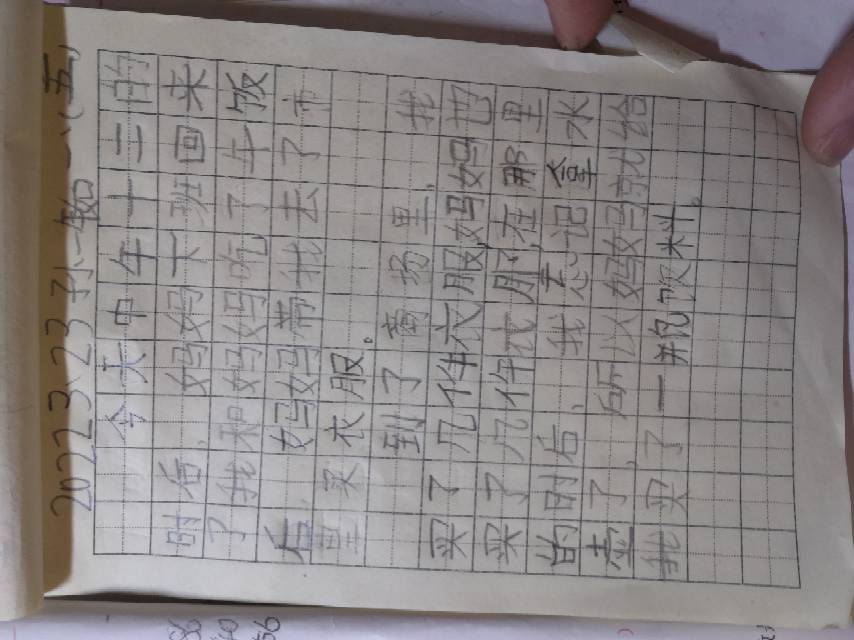 2022 3、23 孙一 一、(五)
今天中午十二的
时后,妈妈下班回来
了我和妈妈吃了午饭
后 妈妈带我去了市
里 买衣服。
到了商场里,我
买了几件衣服,妈妈也
买了几件衣服,在那里
的时后,我忘记拿水
壶了,所以妈妈就给
我买了一瓶饮料。